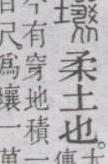 壤柔土也
今有穿地積一
尺爲壤一萬